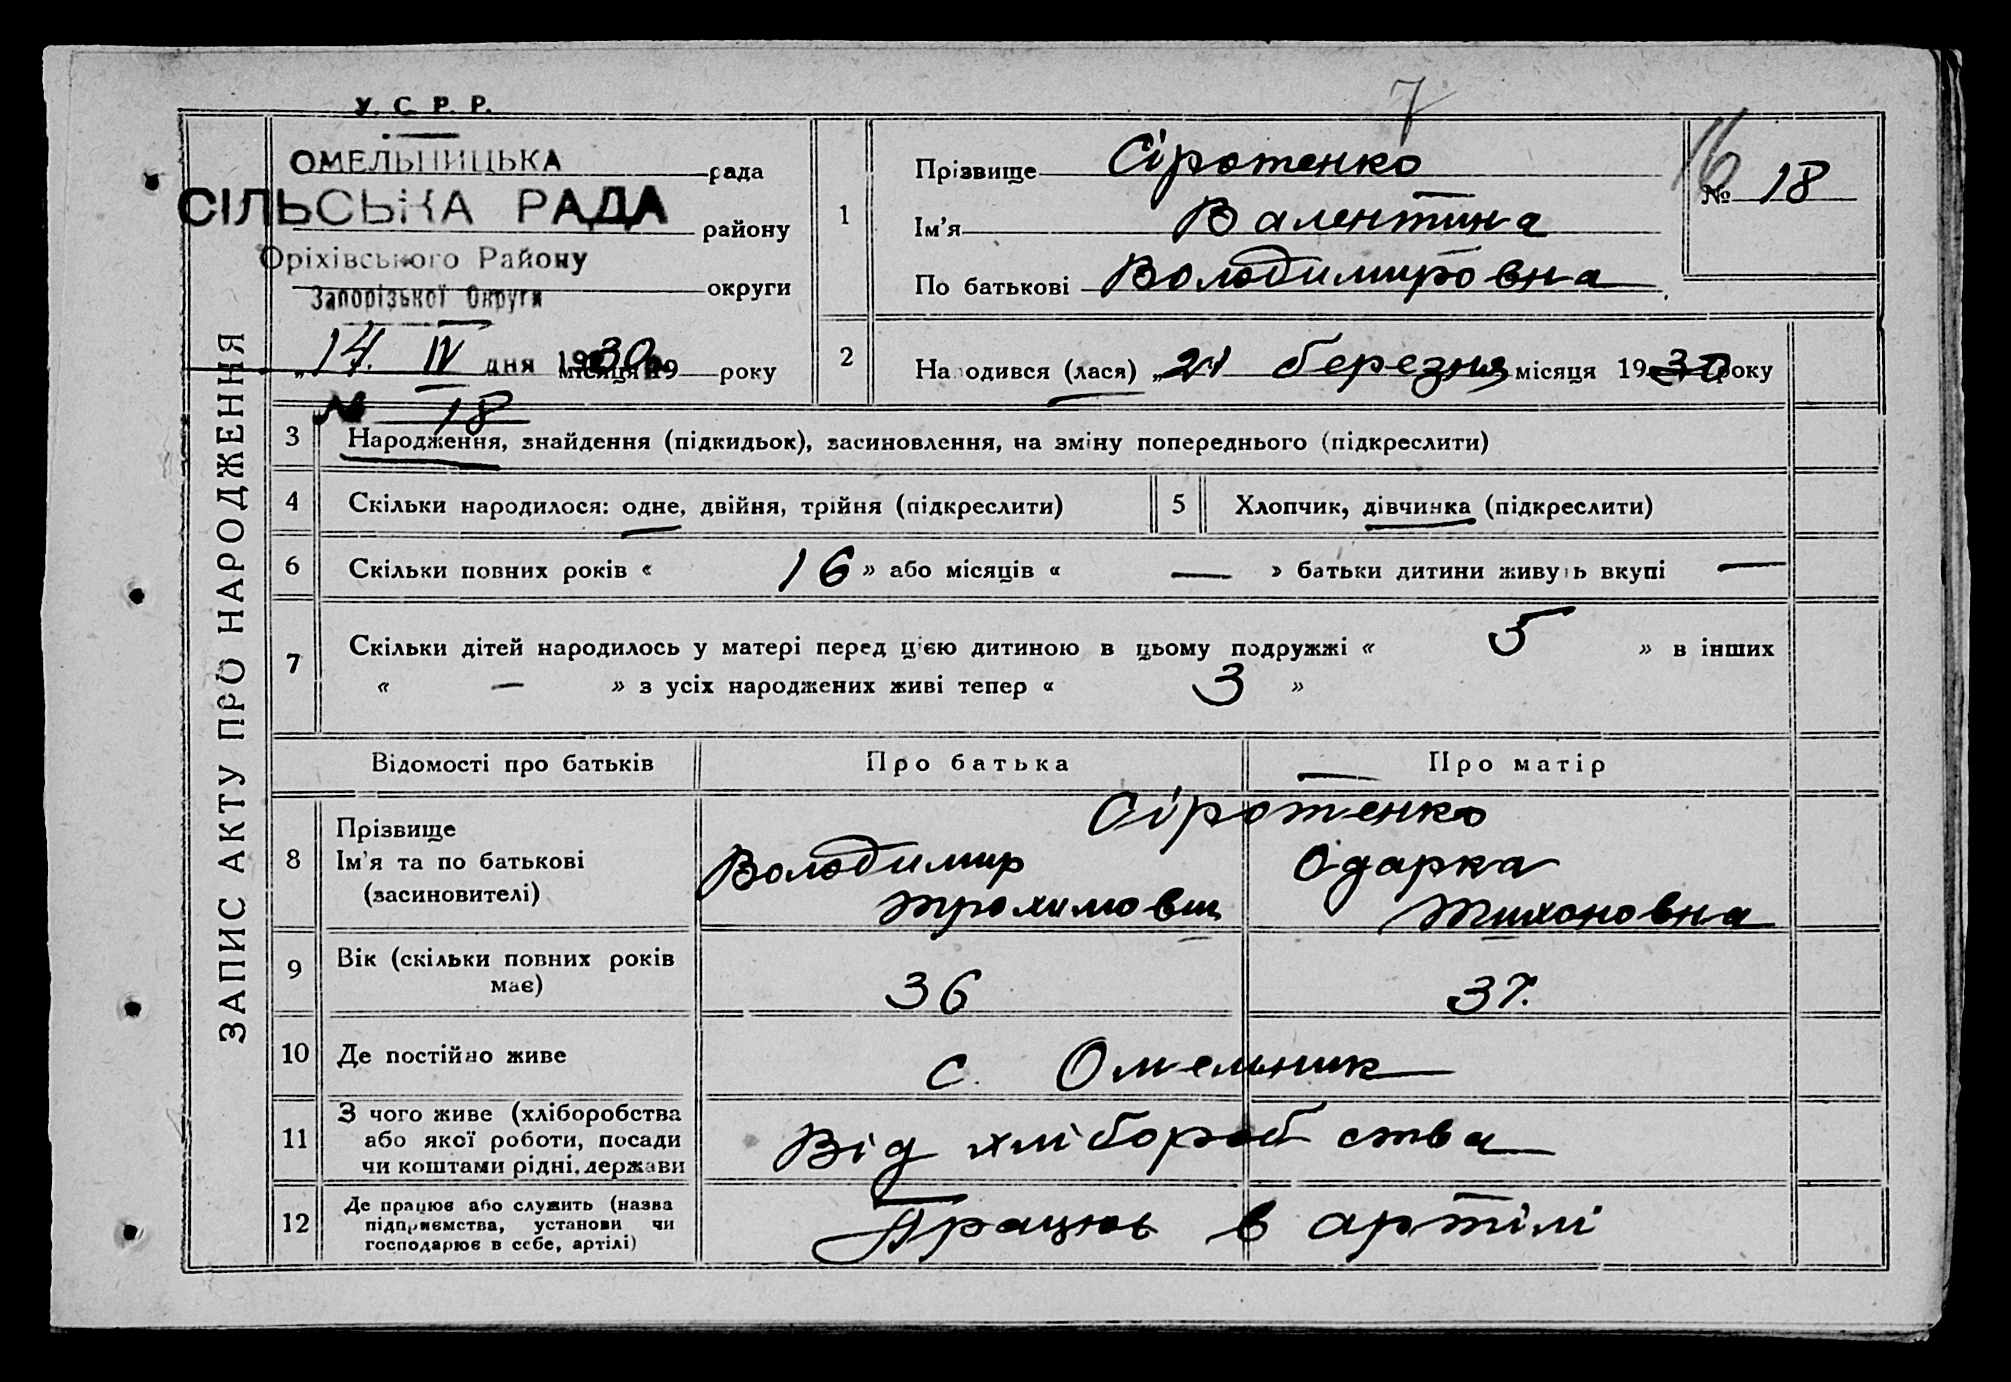 7
У. С. Р. Р.
ОМЕЛЬНИЦЬКА рада
СІЛЬСЬКА РАДА
району
Оріхівського Району
Запорізької Округи
округи
14. IV дня 1930 місяця 19 року
№ 18
1
Прізвище Сіротенко
Ім'я Валентина
По батькові Володимировна
16
№ 18
2
Народився (лася) „21 березня місяця 1930 року
ЗАПИС АКТУ ПРО НАРОДЖЕННЯ
3 Народження, знайдення (підкидьок), засиновлення, на зміну попереднього (підкреслити)
4 Скільки народилося: одне, двійня, трійня (підкреслити)
5 Хлопчик, дівчинка (підкреслити)
6 Скільки повних років « 16 » або місяців « — » батьки дитини живуть вкупі —
7 Скільки дітей народилось у матері перед цією дитиною в цьому подружжі « 5 » в інших
« — » з усіх народжених живі тепер « 3 »
Відомості про батьків Про батька Про матір
8 Прізвище
Ім'я та по батькові
(засиновителі)
Сіротенко
Володимир Одарка
Трохимович Тихоновна
9 Вік (скільки повних років
має)
36 37.
10 Де постійно живе с. Омельник
11 З чого живе (хліборобства
або якої роботи, посади
чи коштами рідні, держави
Від хліборобства
12 Де працює або служить (назва
підприємства, установи чи
господарює в себе, артілі)
Працює в артілі